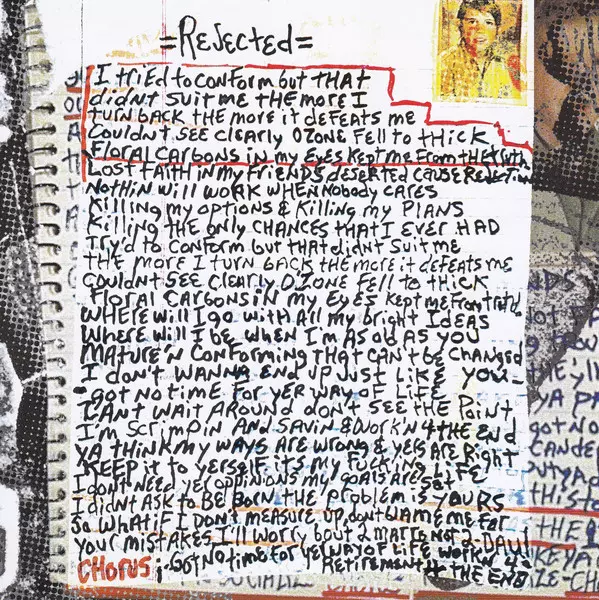 =REJECTED=
I TRIED to CONFORM but tHAt
didnt Suit me tHE moRE I
tuRN bACK tHE moRE it defeats me
Couldnt SEE clEARly OZONE FEll to tHiCK
FloRAl CARbONS iN my EyES KEpt mE FRom tHE tRutH
Lost FAitH iN my FRiENDS dESERtEd CAuSE
NotHiN Will WORK WHEN Nobody CARES
Killing my OptioNS & Killing my PlANS
Killing tHE only CHANCES tHAt I EvER HAD
TRy'd to CONFORM but tHAt didnt Suit mE
tHE moRE I tuRN bACK tHE moRE it dEFEAtS mE
Couldnt SEE ClEARly OZONE FEll to tHiCK
FloRAl CARboNS iN my EyES KEpt mE FRom tRutH
WHERE Will I go WitH All my bRigHt IdEAS
WHERE Will I bE WHEN I'm AS old AS you
MAtuRE'N CONFORMiNg tHAt CAN't bE CHANgEd
I DON't WANNA END up JuSt liKE you
-got No timE FoR yER WAy oF liFE
CANt WAit ARound dON't SEE tHE PoiNt
I'm SCRimpiN ANd SAviN & WoRK'N 4 tHE END
yA tHiNK my WAyS ARE WRoNg & yERS ARE RigHt
KEEP it to yERSElF itS my FucKiNg liFE
I dont NEEd yER oppiNioNS my goAlS ARE SEt
I didNt ASK to bE boRN tHE pRoblEm iS youRS
So WHAt iF I DON't mEASuRE up, dont blAmE mE FoR
youR miStAKES I'll WoRRy bout 2 mARRoW Not 2-DAy!
CHORUS; -got No timE foR yER WAy oF liFE WoRK'N 4-
REtiREmENt 4 tHE END